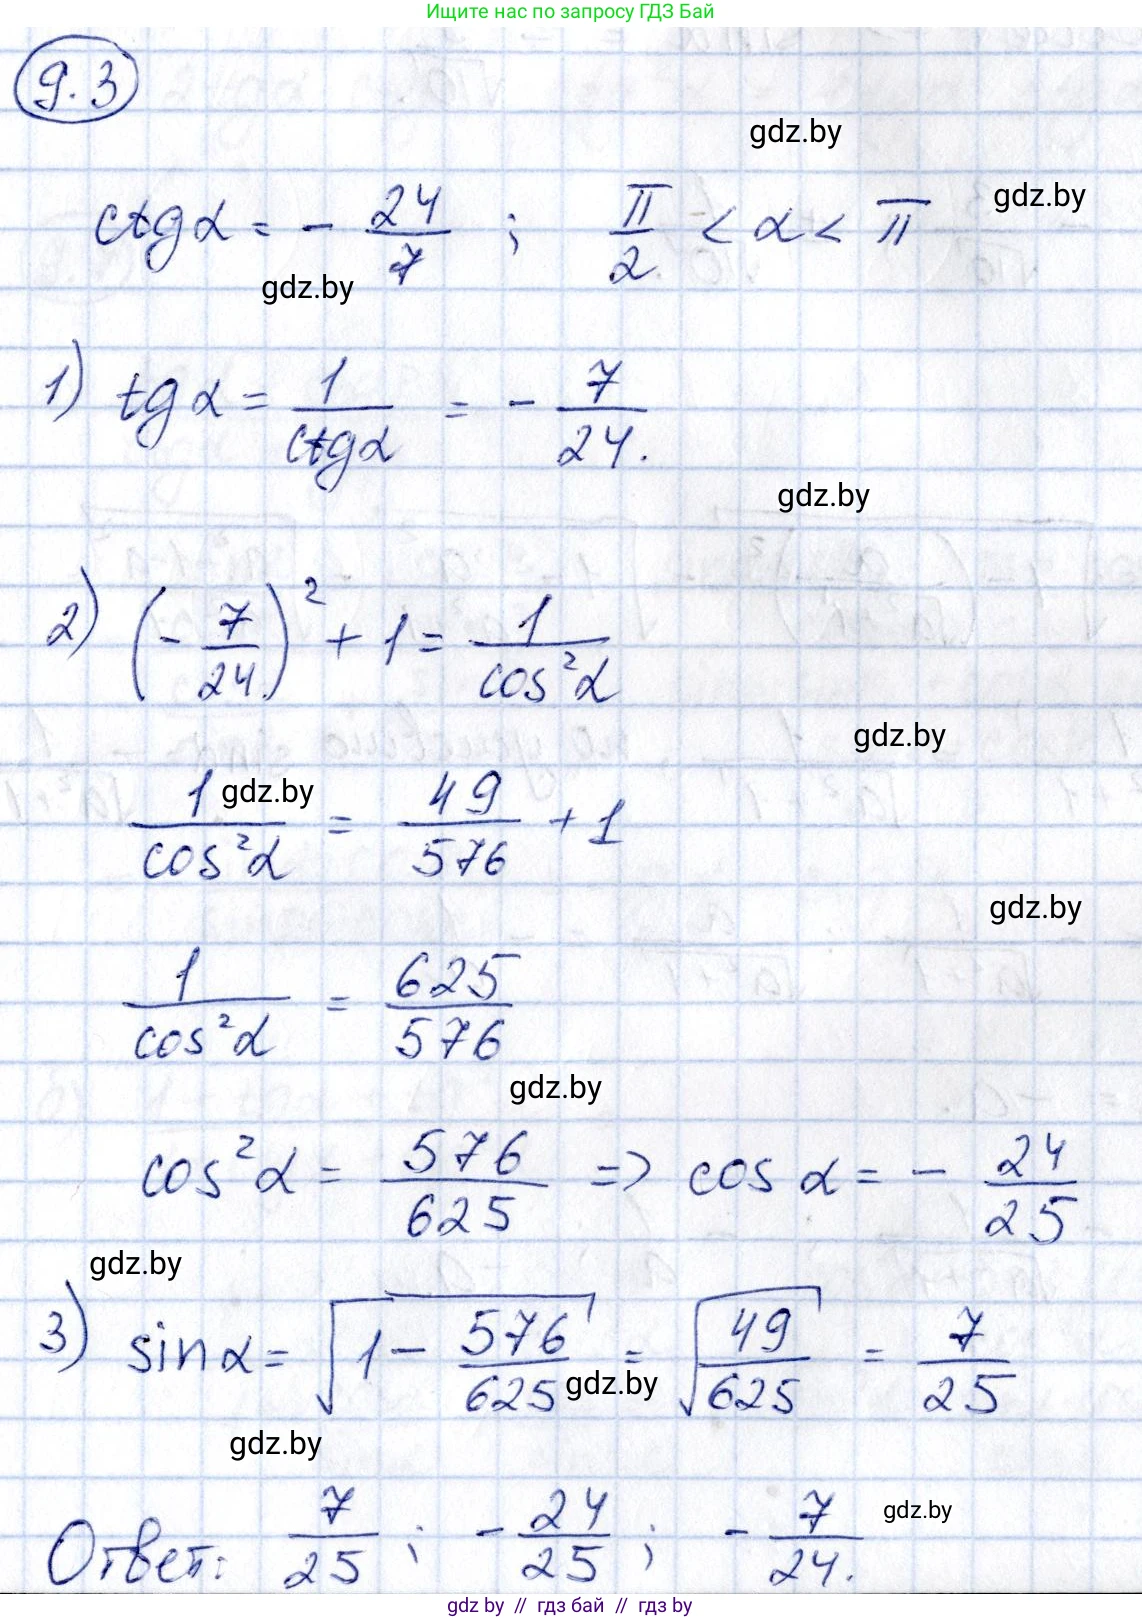 Ищите нас по запросу ГДЗ Бай
9.3
gdz.by
ctgα = - 24/7 ; π/2 < α < π
gdz.by
gdz.by
1) tgα = 1/ctgα = - 7/24.
gdz.by
2) (- 7/24)² + 1 = 1/cos²α
gdz.by
1/cos²α = 49/576 + 1
gdz.by
gdz.by
1/cos²α = 625/576
gdz.by
cos²α = 576/625 => cos α = - 24/25
gdz.by
3) sinα = √(1 - 576/625) = √(49/625) = 7/25
gdz.by
gdz.by
Ответ: 7/25 ; - 24/25 ; - 7/24.
gdz.by
gdz by // гдз бай // гдз by